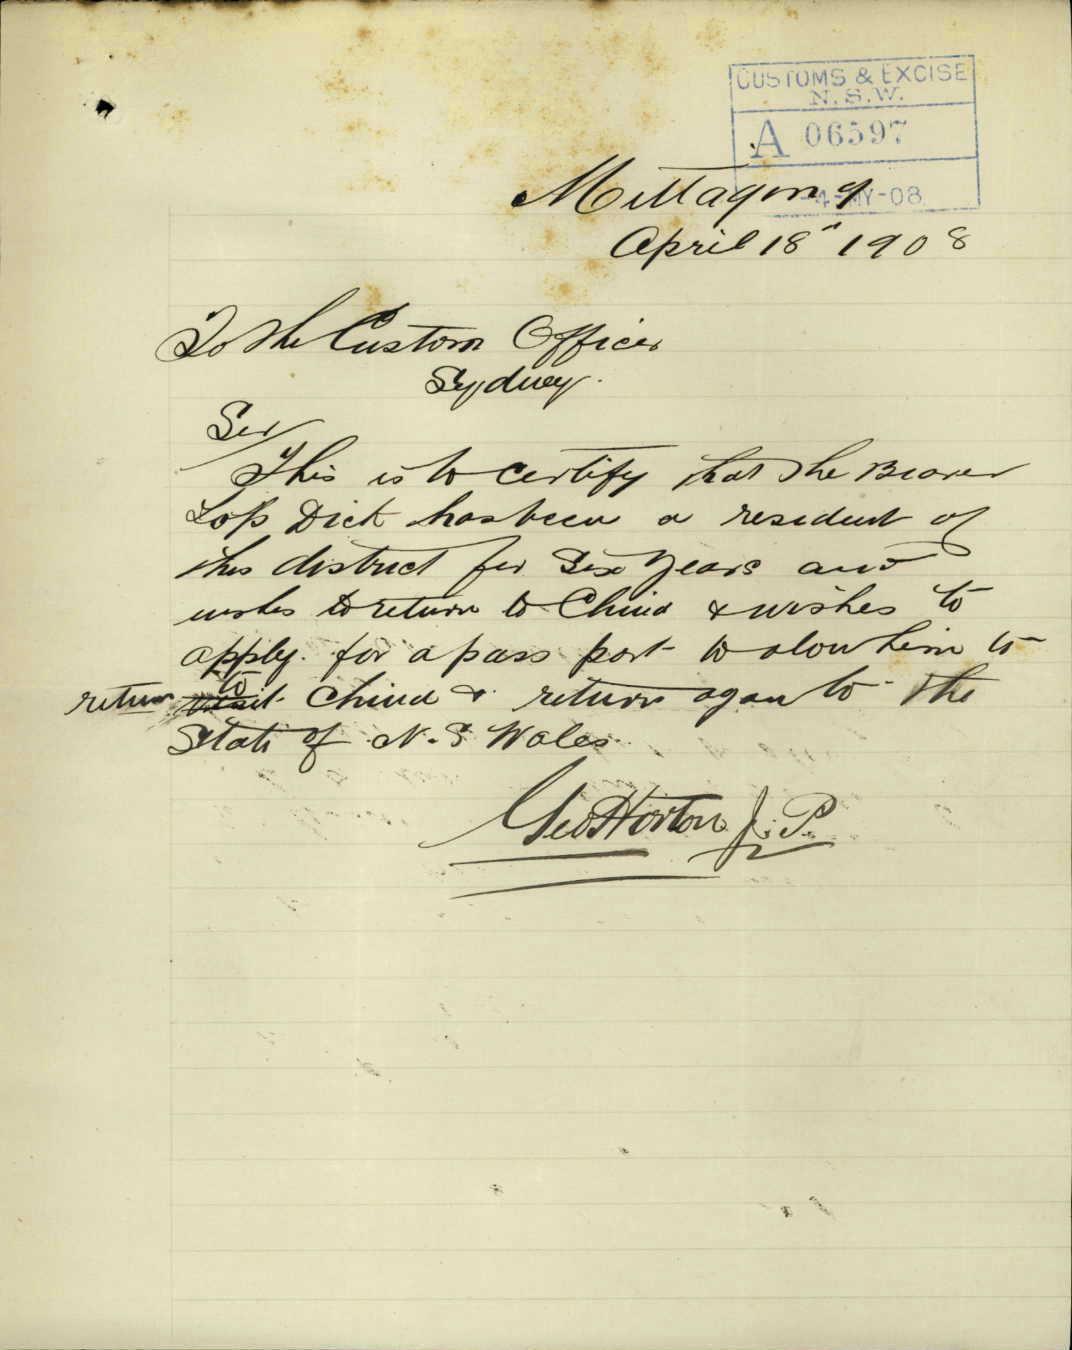 CUSTOMS & EXCISE
N.S.W.
A 06597
-4-MY-08
Mittagong
April 18th 1908
To the Custom Officer
Sydney.
Sir/
This is to certify that the Bearer
Lop Dick has been a resident of
this district for Six Years and
wishes to return to China & wishes to
apply. for a pass port to alow him to
return to visit China & return agan to the
State of N. S Wales.
Geo Horton J. P.